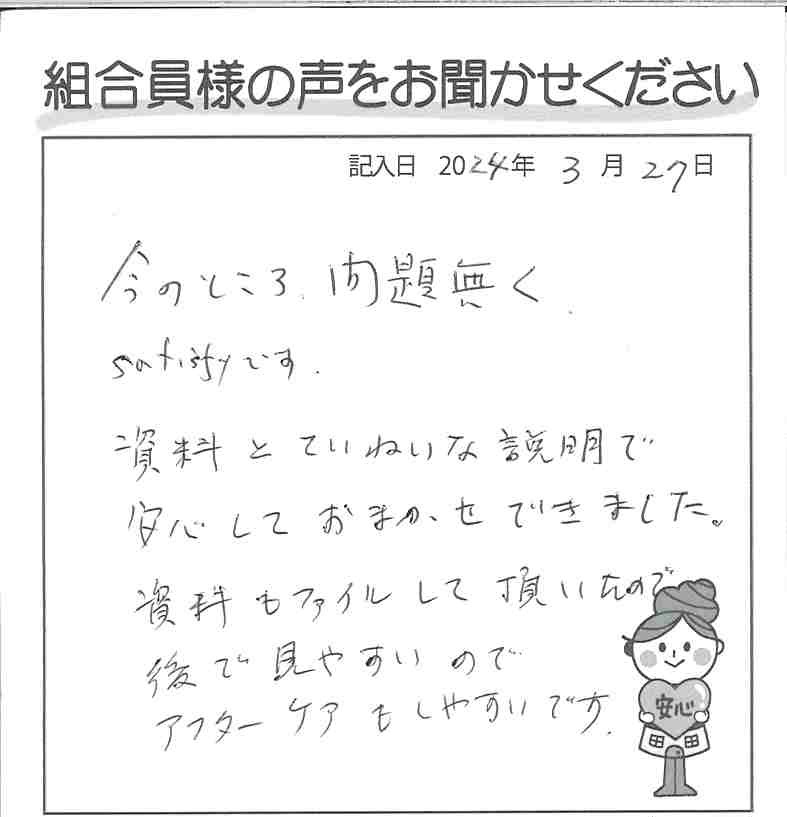 組合員様の声をお聞かせください
記入日 2024年 3月 27日
今のところ、問題無く
satisfyです.
資料とていねいな説明で
安心しておまかせできました。
資料もファイルして頂いたので
後で見やすいので
アフターケアもしやすいです.
安心